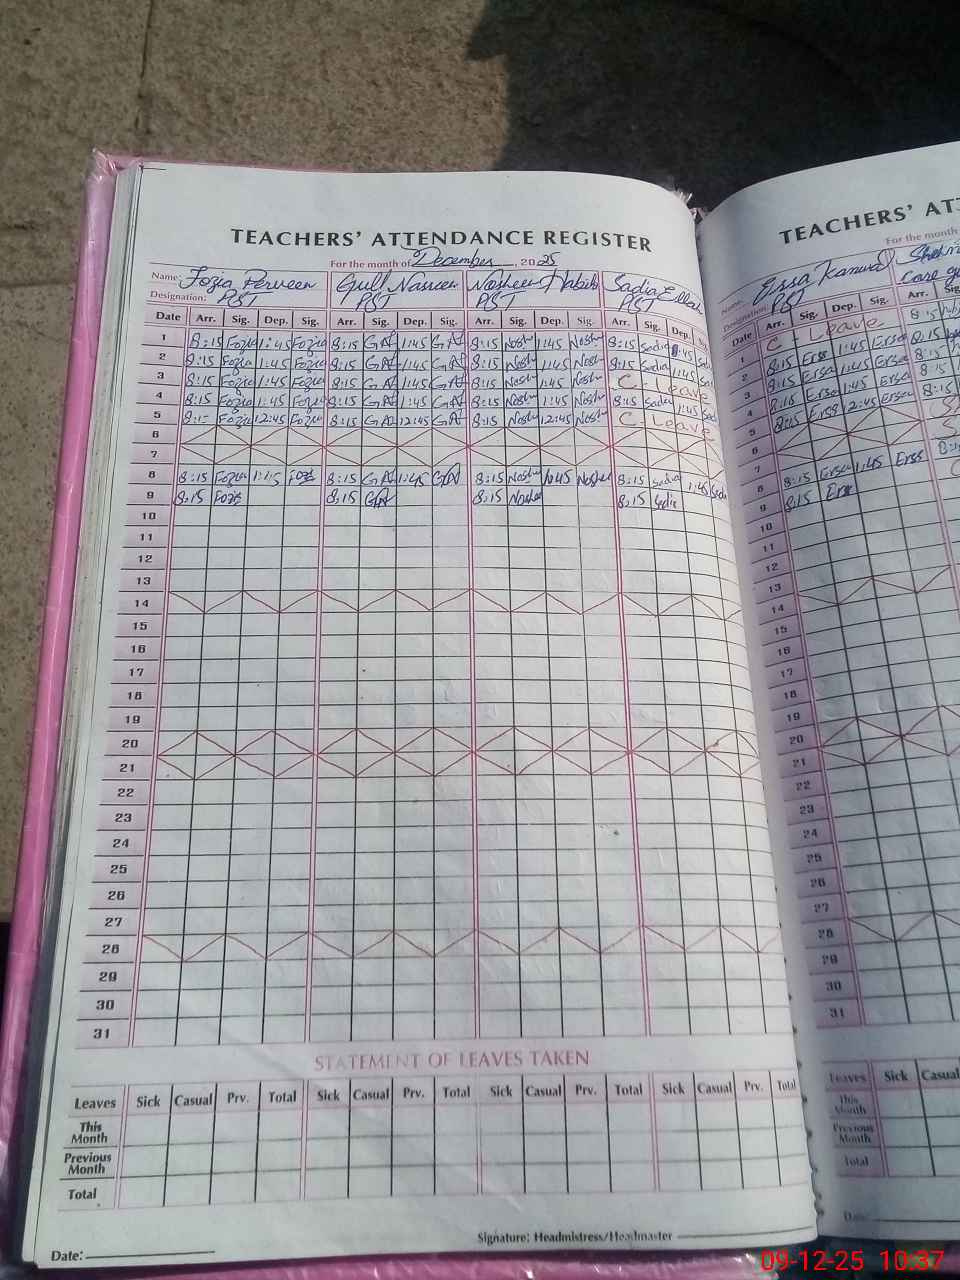 TEACHERS' ATTENDANCE REGISTER
For the month of December, 2025
Name: Fozia Perveen Gull Nasreen Nosheen Habib Sadia
Designation: PST PST PST PST
Date Arr. Sig. Dep. Sig. Arr. Sig. Dep. Sig. Arr. Sig. Dep. Sig. Arr. Sig. Dep.
1 8:15 Fozia 1:45 Fozia 8:15 1:45 8:15 Nosh 1:45 Nosh 8:15 Sadia
2 8:15 Fozia 1:45 Fozia 8:15 1:45 8:15 Nosh 1:45 Nosh 8:15 Sadia 1:45
3 8:15 Fozia 1:45 Fozia 8:15 1:45 8:15 Nosh 1:45 Nosh C - Leave
4 8:15 Fozia 1:45 Fozia 8:15 1:45 8:15 Nosh 1:45 Nosh 8:15 Sadia 1:45
5 8:15 Fozia 12:45 Fozia 8:15 12:45 8:15 Nosh 12:45 Nosh C - Leave
6
7
8 8:15 Fozia 8:15 1:45 8:15 Nosh 8:15 Sadia 1:45
9 8:15 Fozia 8:15 8:15 8:15 Sadia
10
11
12
13
14
15
16
17
18
19
20
21
22
23
24
25
26
27
28
29
30
31
STATEMENT OF LEAVES TAKEN
Leaves Sick Casual Prv. Total Sick Casual Prv. Total Sick Casual Prv. Total Sick Casual Prv. Total
This Month
Previous Month
Total
Signature: Headmistress/Headmaster
Date:
TEACHERS'
For the month
Name: Ersa Kanwal
Designation: PST
Date Arr. Sig. Dep. Sig. Arr. Sig.
1 C - Leave 8:15
2 8:15 Ersa 1:45 Ersa 8:15
3 8:15 Ersa 1:45 Ersa 8:15
4 Ersa 1:45 Ersa 8:15
5 8:15 Ersa 12:45 Ersa
6
7
8 8:15 Ersa 1:45 Erss
9 8:15
10
11
12
13
14
15
16
17
18
19
20
21
22
23
24
25
26
27
28
29
30
31
Leaves Sick Casual
This Month
Previous Month
Total
09-12-25 10:37